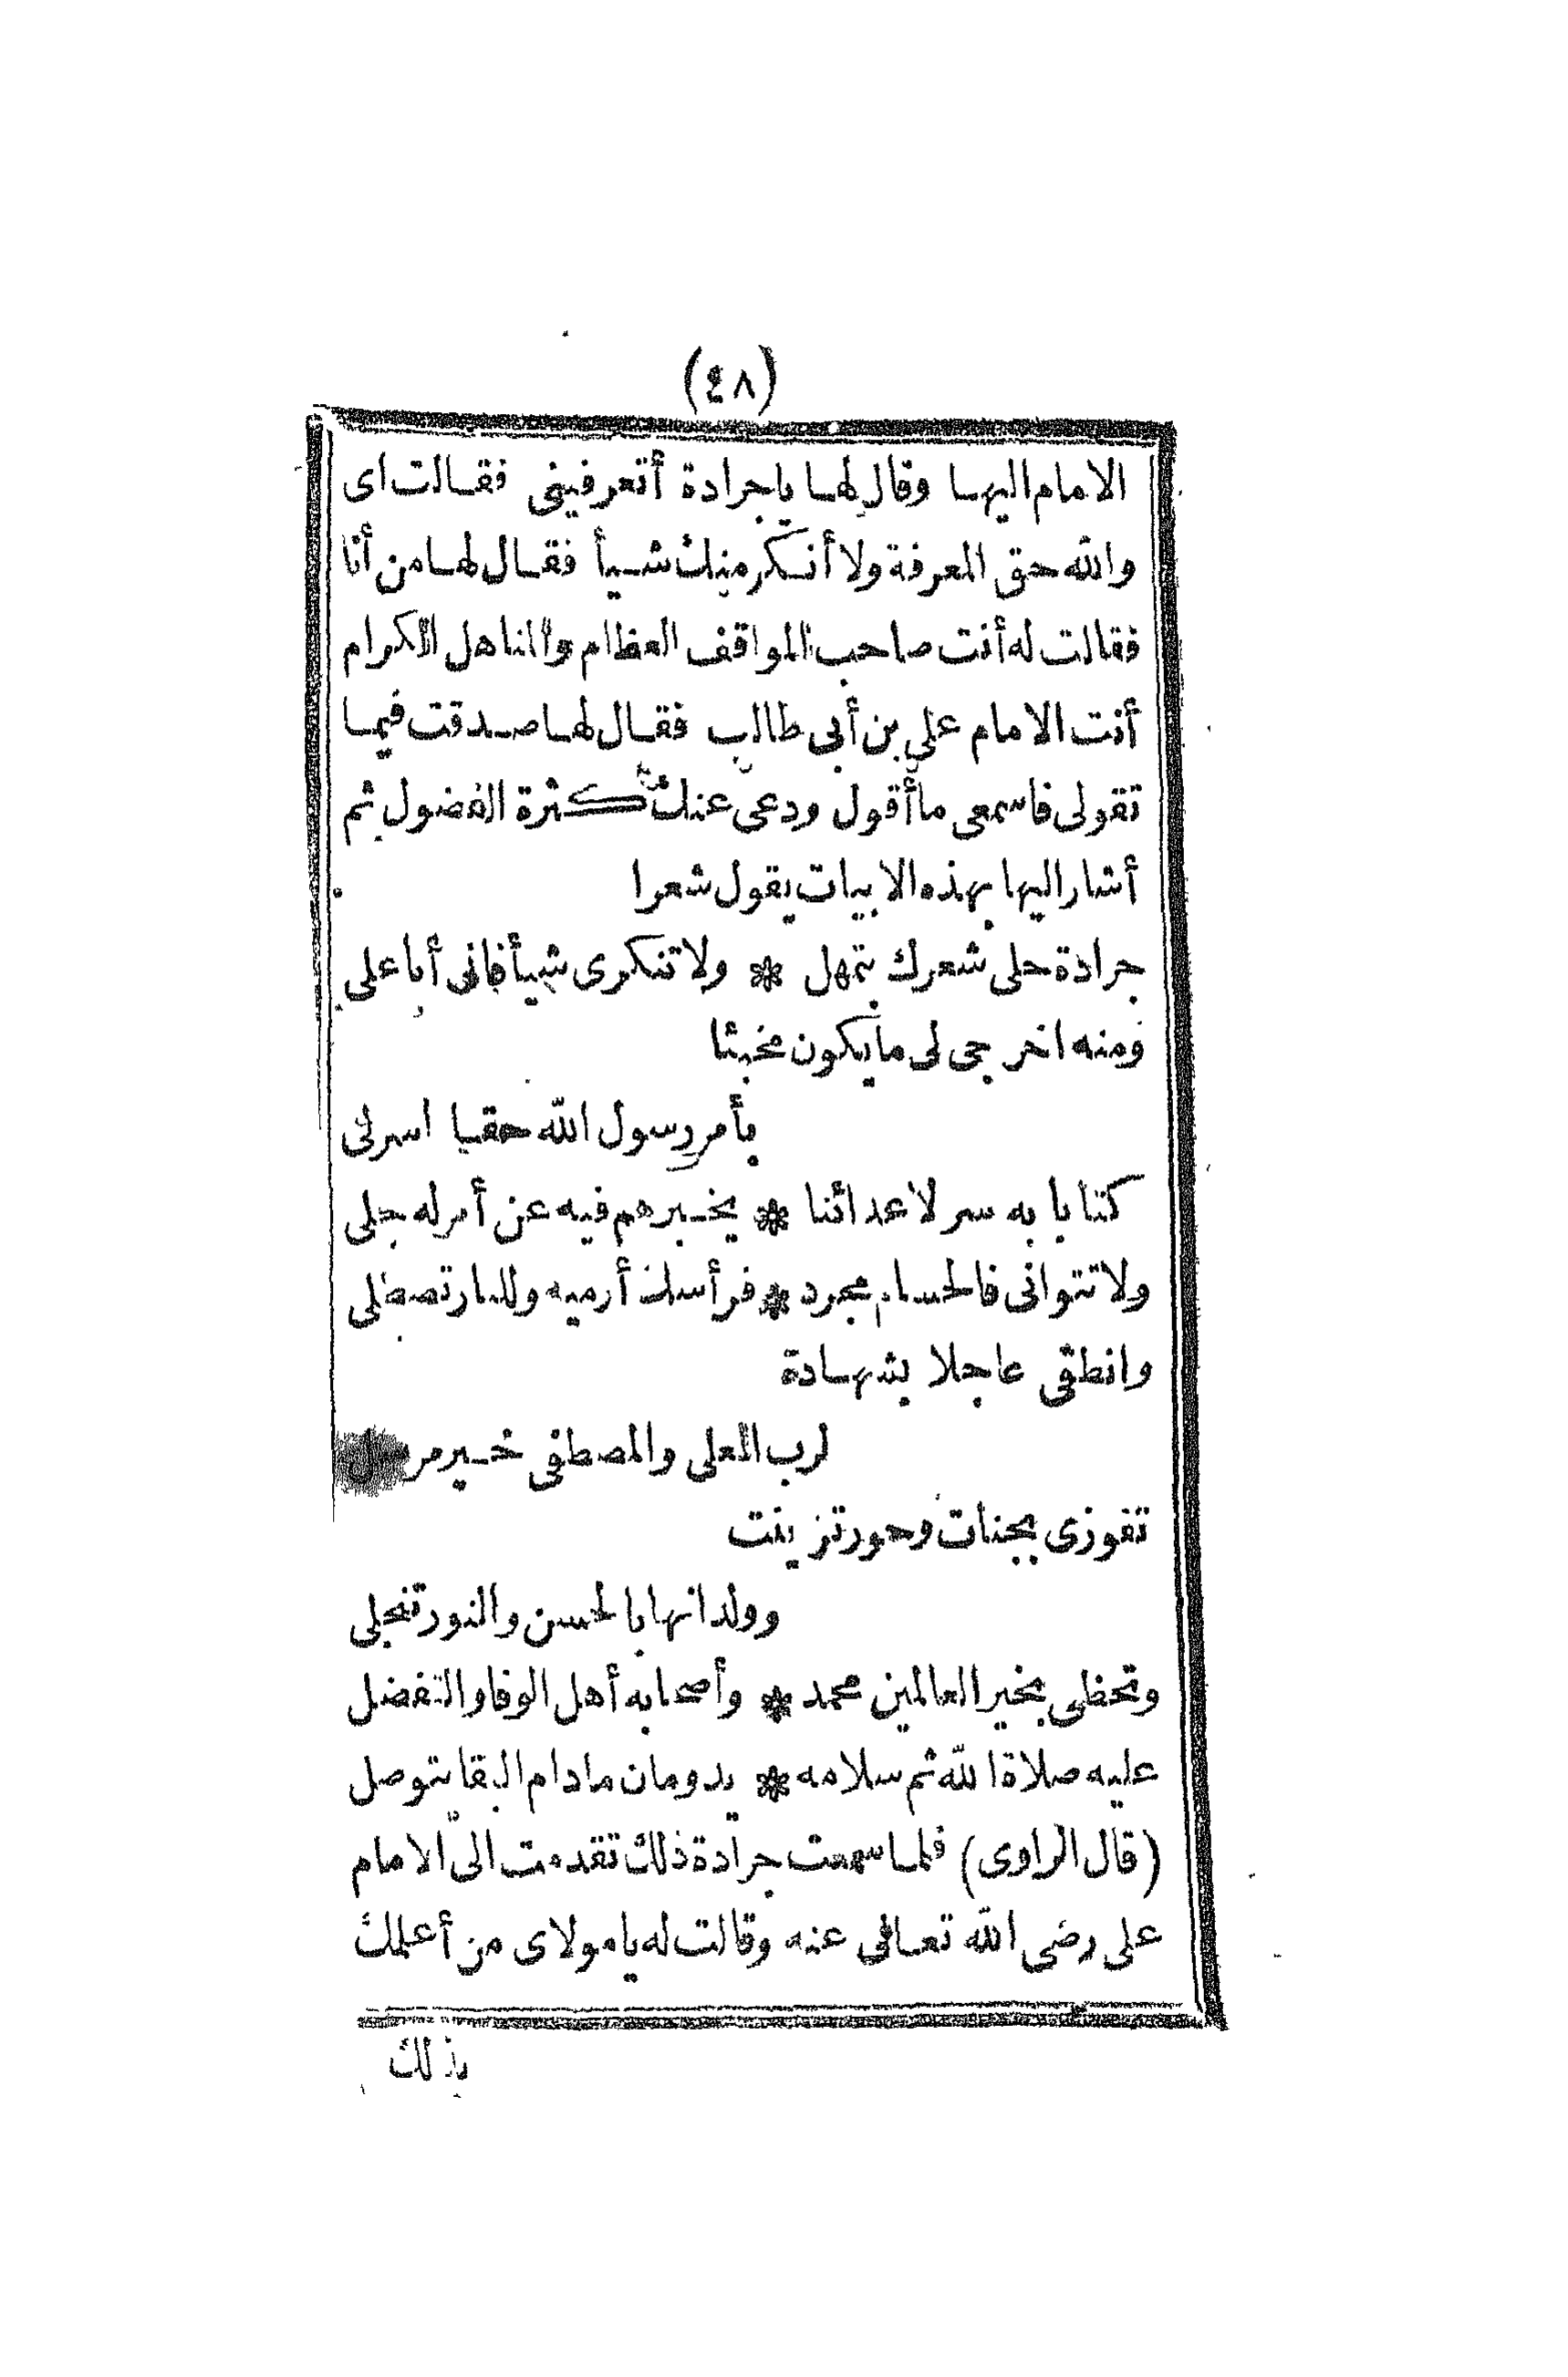 (٤٨)
الامام اليها وقال لها ياجرادة أتعرفينى فقالت اى
والله حق المعرفة ولا أنكر منك شيأ فقال لها من أنا
فقالت له أنت صاحب المواقف العظام والمناهل الكرام
أنت الامام على بن أبى طالب فقال لها صدقت فيما
تقولى فاسمعى ما أقول ودعى عنك كثرة الفضول ثم
أشار اليها بهذه الابيات يقول شعرا
جرادة حلى شعرك بتمهل * ولا تنكرى شيأ فانى أبا على
ومنه اخرجى لى ما يكون مخبئا
بأمر رسول الله حقا اسرلى
كتابا به سر لاعدائنا * يخبرهم فيه عن أمر له جلى
ولا تتوانى فالحسام مجرد * فرأسك أرميه وللنار تصطلى
وانطقى عاجلا بشهادة
لرب العلى والمصطفى خير مرسل
تفوزى بجنات وحور تزينت
وولدانها بالحسن والنور تنجلى
وتحظى بخير العالمين محمد * وأصحابه أهل الوفا والتفضل
عليه صلاة الله ثم سلامه * يدومان مادام البقا يتوصل
(قال الراوى) فلما سمعت جرادة ذلك تقدمت الى الامام
على رضى الله تعالى عنه وقالت له يامولاى من أعلمك
بذلك